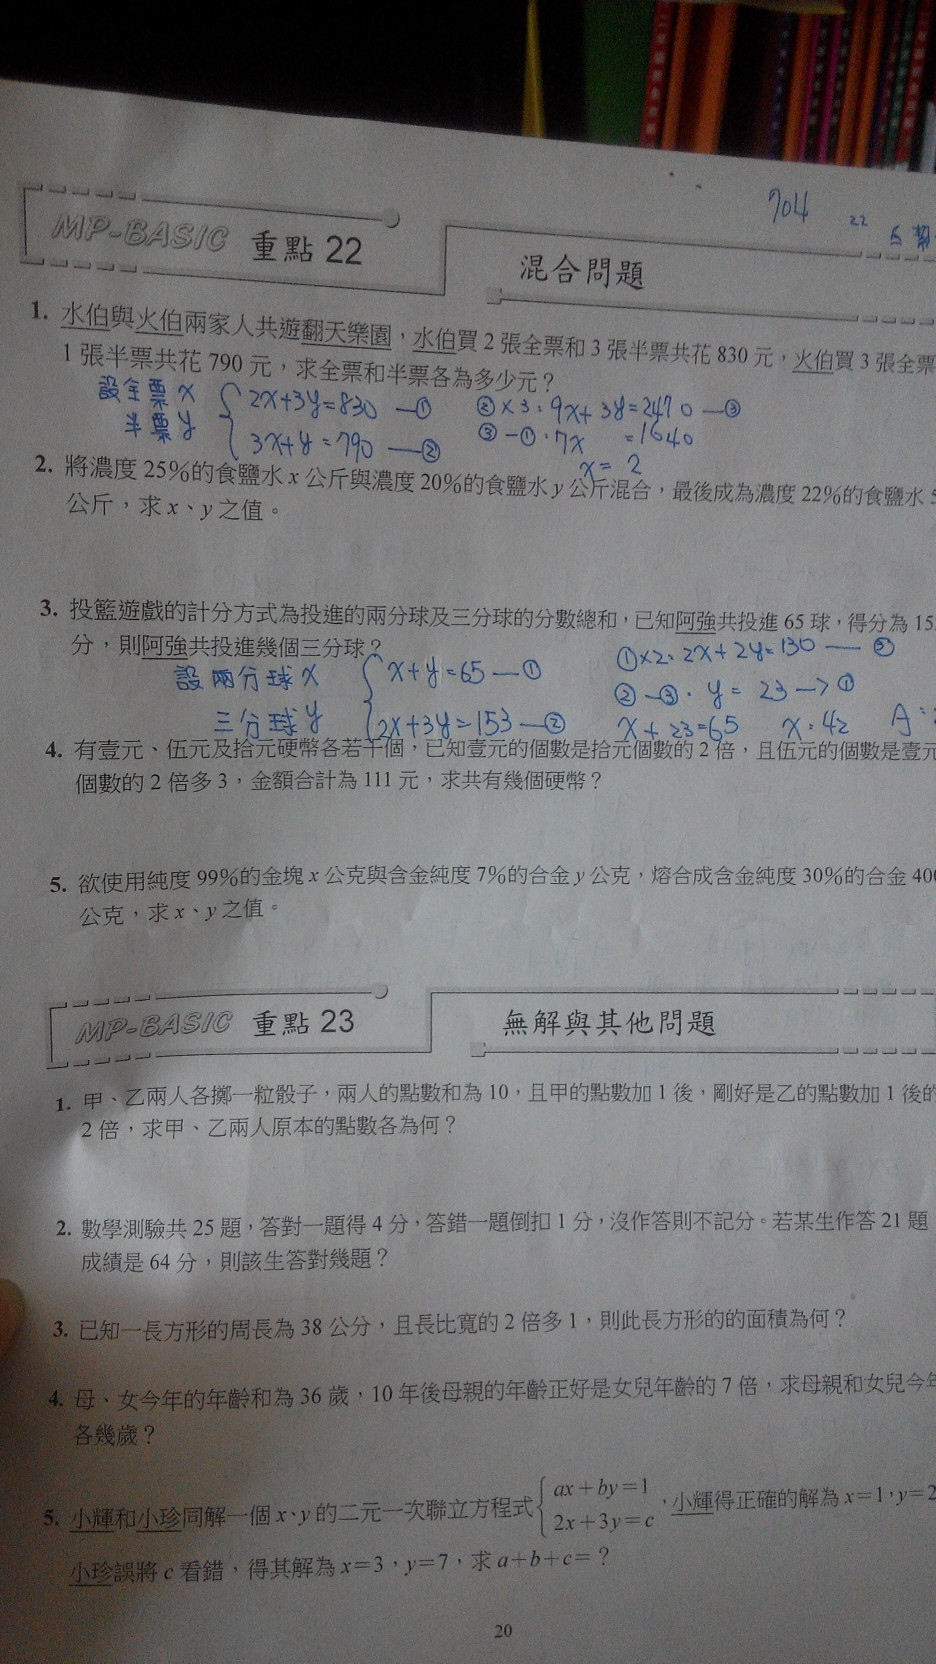 704 22
MP-BASIC 重點 22
混合問題
1. 水伯與火伯兩家人共遊翻天樂園，水伯買 2 張全票和 3 張半票共花 830 元，火伯買 3 張全票
1 張半票共花 790 元，求全票和半票各為多少元？
設全票 x { 2x+3y=830 —① ②×3：9x+3y=2470 —③
半票 y 3x+y=790 —② ③-①：7x =1640
x= 2
2. 將濃度 25%的食鹽水 x 公斤與濃度 20%的食鹽水 y 公斤混合，最後成為濃度 22%的食鹽水
公斤，求 x、y 之值。
3. 投籃遊戲的計分方式為投進的兩分球及三分球的分數總和，已知阿強共投進 65 球，得分為 15
分，則阿強共投進幾個三分球？
設兩分球 x { x+y=65 —① ①×2：2x+2y=130 — ③
三分球 y 2x+3y=153 —② ②-③：y= 23 —>①
x+23=65 x=42 A：
4. 有壹元、伍元及拾元硬幣各若干個，已知壹元的個數是拾元個數的 2 倍，且伍元的個數是壹元
個數的 2 倍多 3，金額合計為 111 元，求共有幾個硬幣？
5. 欲使用純度 99%的金塊 x 公克與含金純度 7%的合金 y 公克，熔合成含金純度 30%的合金 400
公克，求 x、y 之值。
MP-BASIC 重點 23
無解與其他問題
1. 甲、乙兩人各擲一粒骰子，兩人的點數和為 10，且甲的點數加 1 後，剛好是乙的點數加 1 後的
2 倍，求甲、乙兩人原本的點數各為何？
2. 數學測驗共 25 題，答對一題得 4 分，答錯一題倒扣 1 分，沒作答則不記分。若某生作答 21 題
成績是 64 分，則該生答對幾題？
3. 已知一長方形的周長為 38 公分，且長比寬的 2 倍多 1，則此長方形的的面積為何？
4. 母、女今年的年齡和為 36 歲，10 年後母親的年齡正好是女兒年齡的 7 倍，求母親和女兒今年
各幾歲？
5. 小輝和小珍同解一個 x、y 的二元一次聯立方程式 { ax+by=1
2x+3y=c ，小輝得正確的解為 x=1，y=2
小珍誤將 c 看錯，得其解為 x=3，y=7，求 a+b+c=？
20